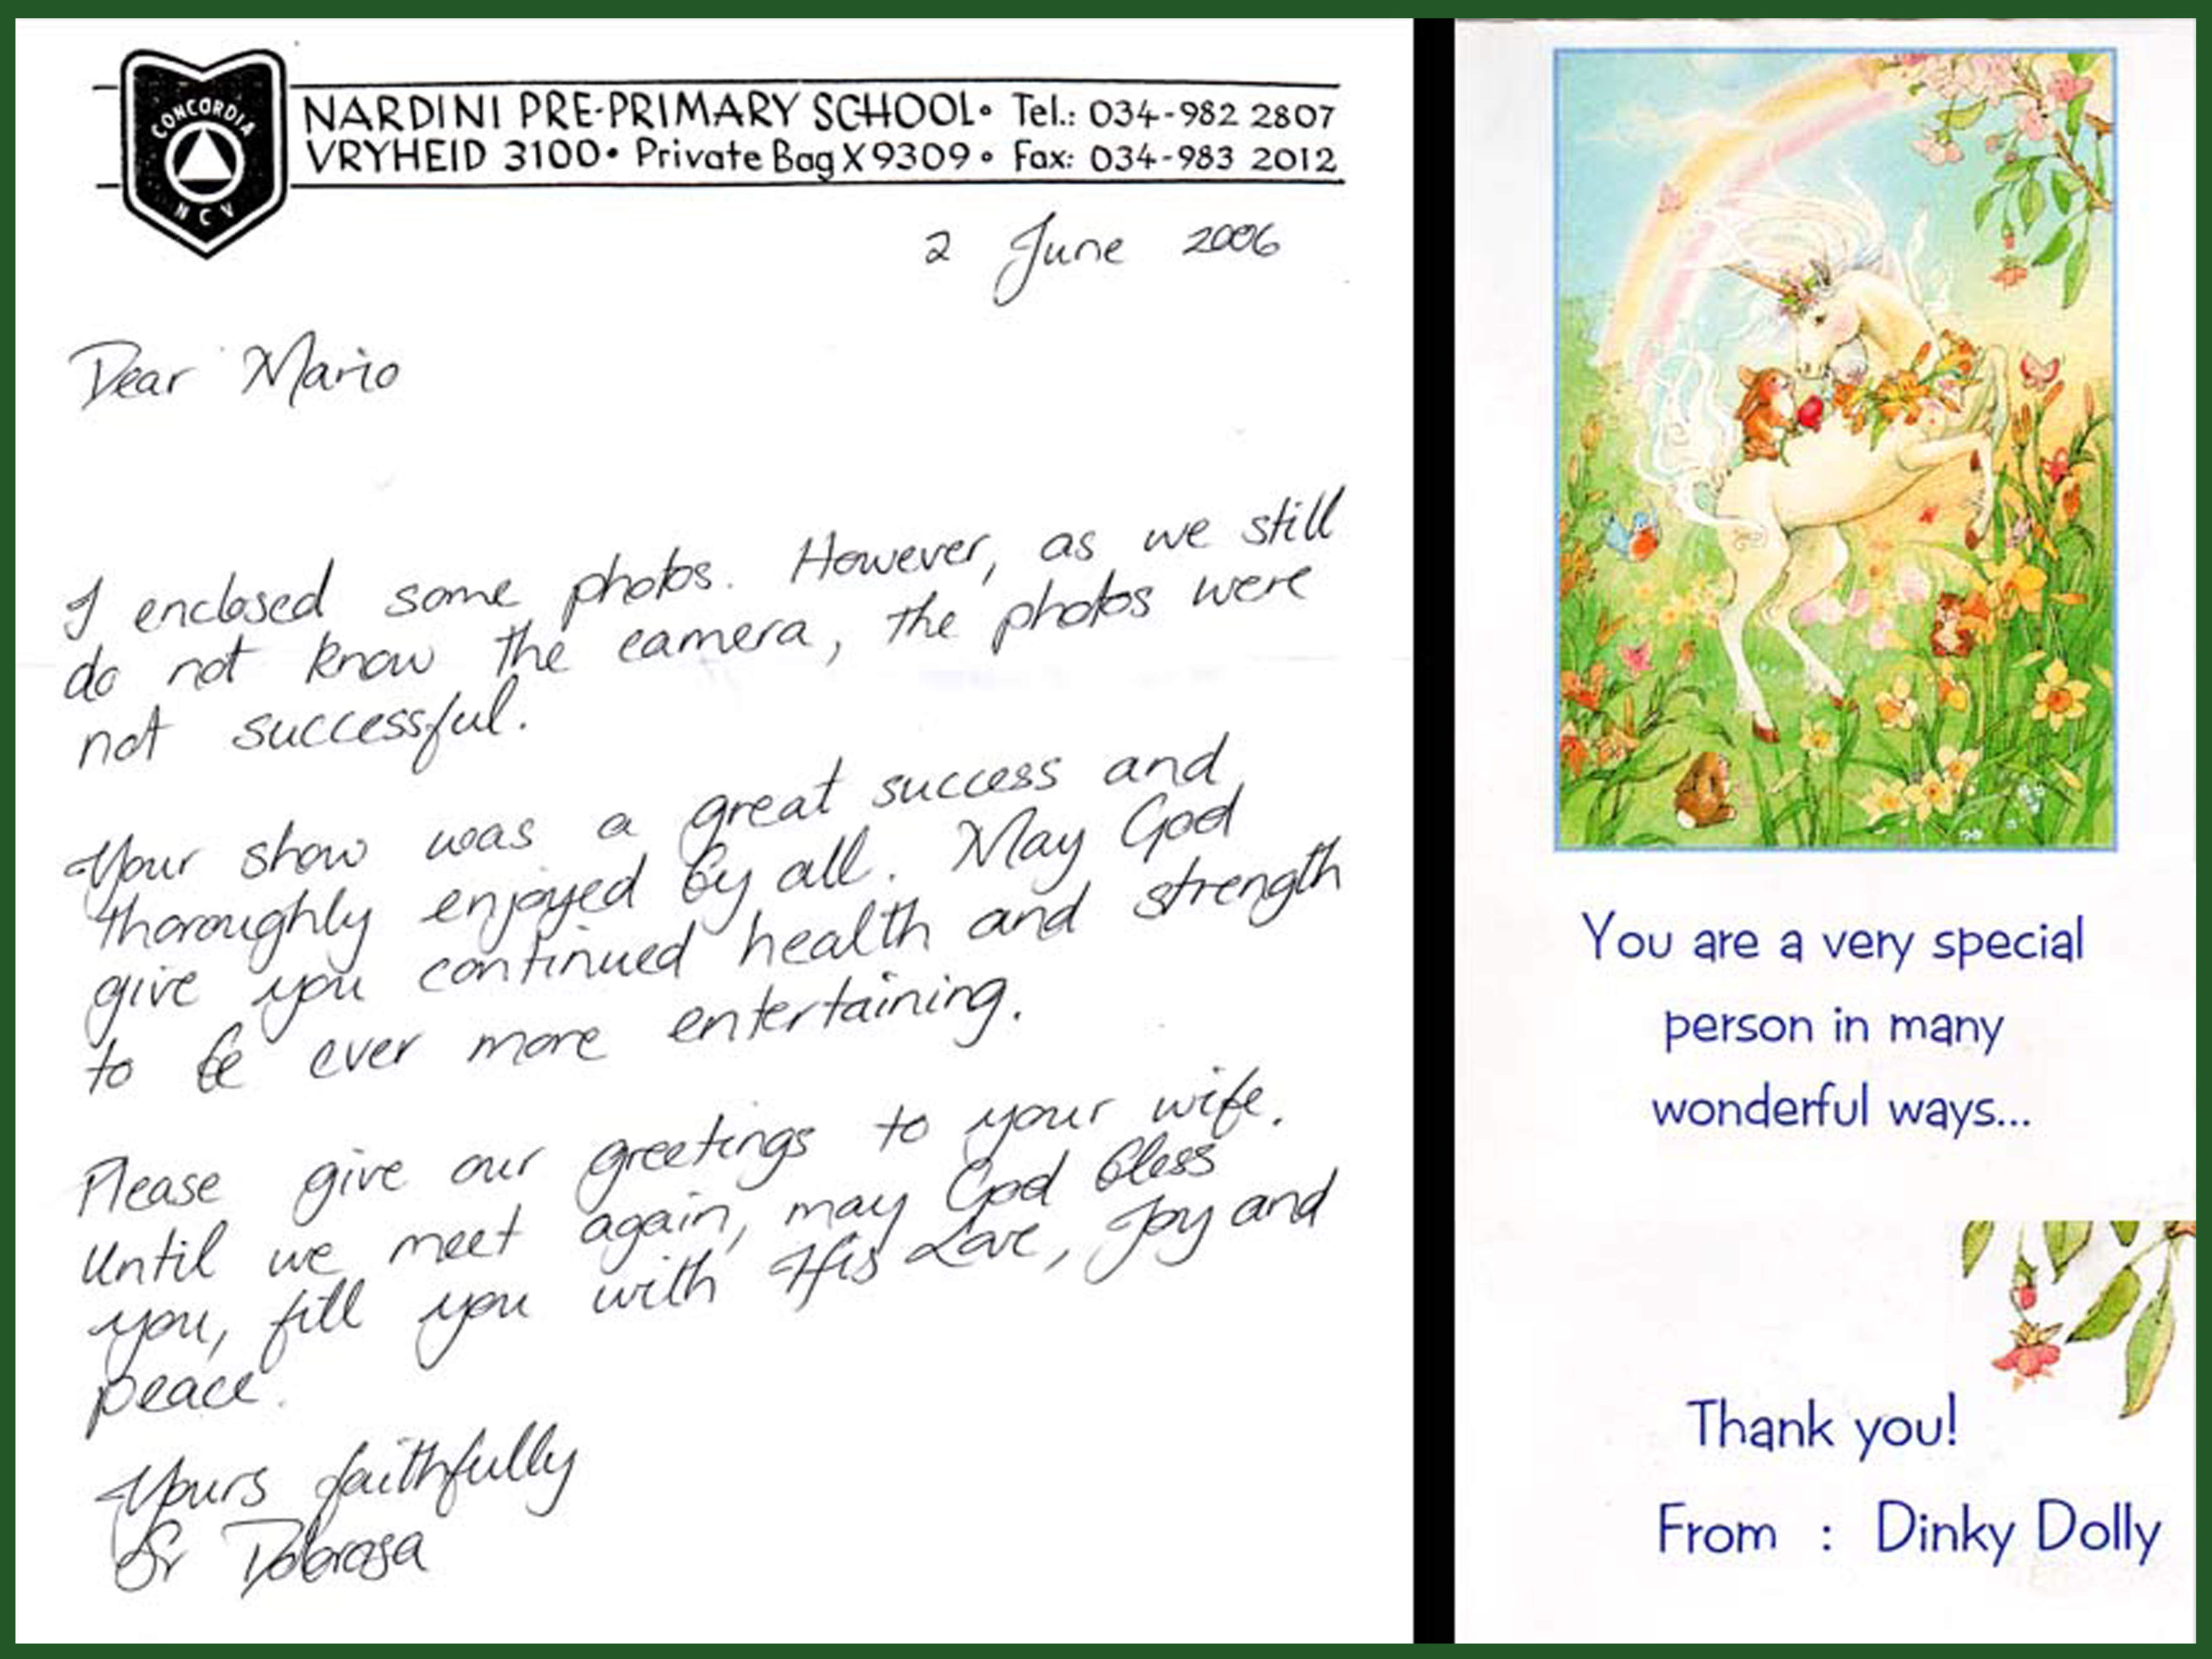 CONCORDIA
N C V
NARDINI PRE-PRIMARY SCHOOL• Tel.: 034-982 2807
VRYHEID 3100• Private Bag X9309• Fax: 034-983 2012
2 June 2006
Dear Mario
I enclosed some photos. However, as we still
do not know the camera, the photos were
not successful.
Your show was a great success and
thoroughly enjoyed by all. May God
give you continued health and strength
to be ever more entertaining.
Please give our greetings to your wife.
Until we meet again, may God bless
you, fill you with His Love, Joy and
peace.
Yours faithfully
Sr Dolorosa
You are a very special
person in many
wonderful ways...
Thank you!
From : Dinky Dolly